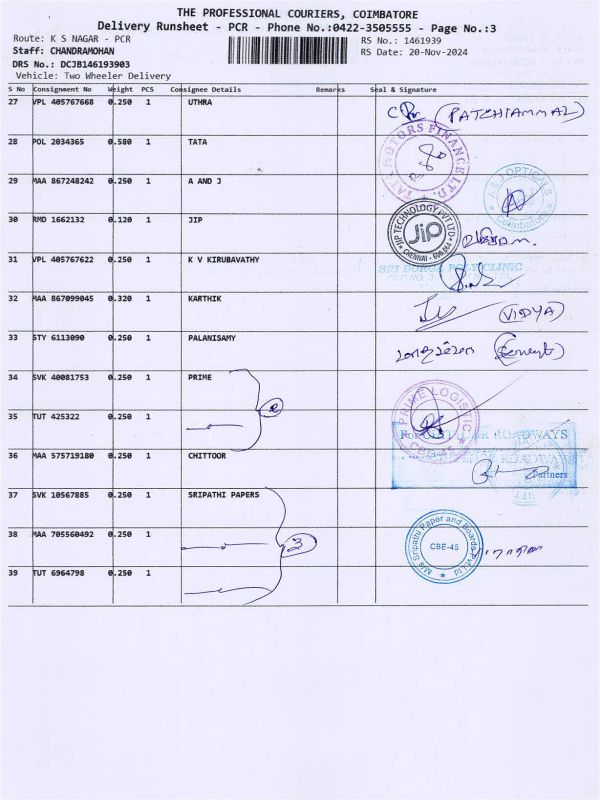 THE PROFESSIONAL COURIERS, COIMBATORE
Delivery Runsheet - PCR - Phone No.:0422-3505555 - Page No.:3
Route: K S NAGAR - PCR
RS No.: 1461939
Staff: CHANDRAMOHAN
RS Date: 20-Nov-2024
DRS No.: DCJB146193903
Vehicle: Two Wheeler Delivery
S No Consignment No Weight PCS Consignee Details Remarks Seal & Signature
27 VPL 405767668 0.250 1 UTHRA (PATCHIAMMAL)
28 POL 2034365 0.580 1 TATA
TATA MOTORS FINANCE LTD.
29 MAA 867248242 0.250 1 A AND J
A & J OPTICALS Coimbatore
30 RMD 1662132 0.120 1 JIP
JIP TECHNOLOGY PVT LTD JiP CHENNAI
31 VPL 405767622 0.250 1 K V KIRUBAVATHY
SRI DURGA POLYCLINIC
32 MAA 867099045 0.320 1 KARTHIK (VIDYA)
33 STY 6113090 0.250 1 PALANISAMY
34 SVK 40081753 0.250 1 PRIME
2
PRIME LOGISTIC CBE-45
35 TUT 425322 0.250 1
For CHITTOOR ROADWAYS
36 MAA 575719180 0.250 1 CHITTOOR
Partners
37 SVK 10567885 0.250 1 SRIPATHI PAPERS
38 MAA 705560492 0.250 1
3
M/s Sripathi Paper and Boards Pvt Ltd CBE-45
39 TUT 6964798 0.250 1